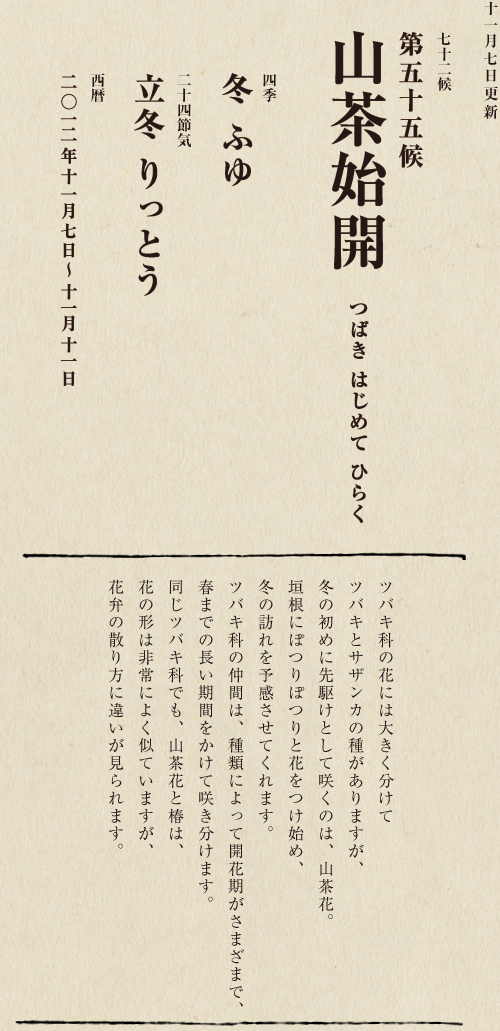 十一月七日更新
七十二候
第五十五候
山茶始開 つばき はじめて ひらく
四季
冬 ふゆ
二十四節気
立冬 りっとう
西暦
二〇一二年十一月七日〜十一月十一日
ツバキ科の花には大きく分けて
ツバキとサザンカの種がありますが、
冬の初めに先駆けとして咲くのは、山茶花。
垣根にぽつりぽつりと花をつけ始め、
冬の訪れを予感させてくれます。
ツバキ科の仲間は、種類によって開花期がさまざまで、
春までの長い期間をかけて咲き分けます。
同じツバキ科でも、山茶花と椿は、
花の形は非常によく似ていますが、
花弁の散り方に違いが見られます。